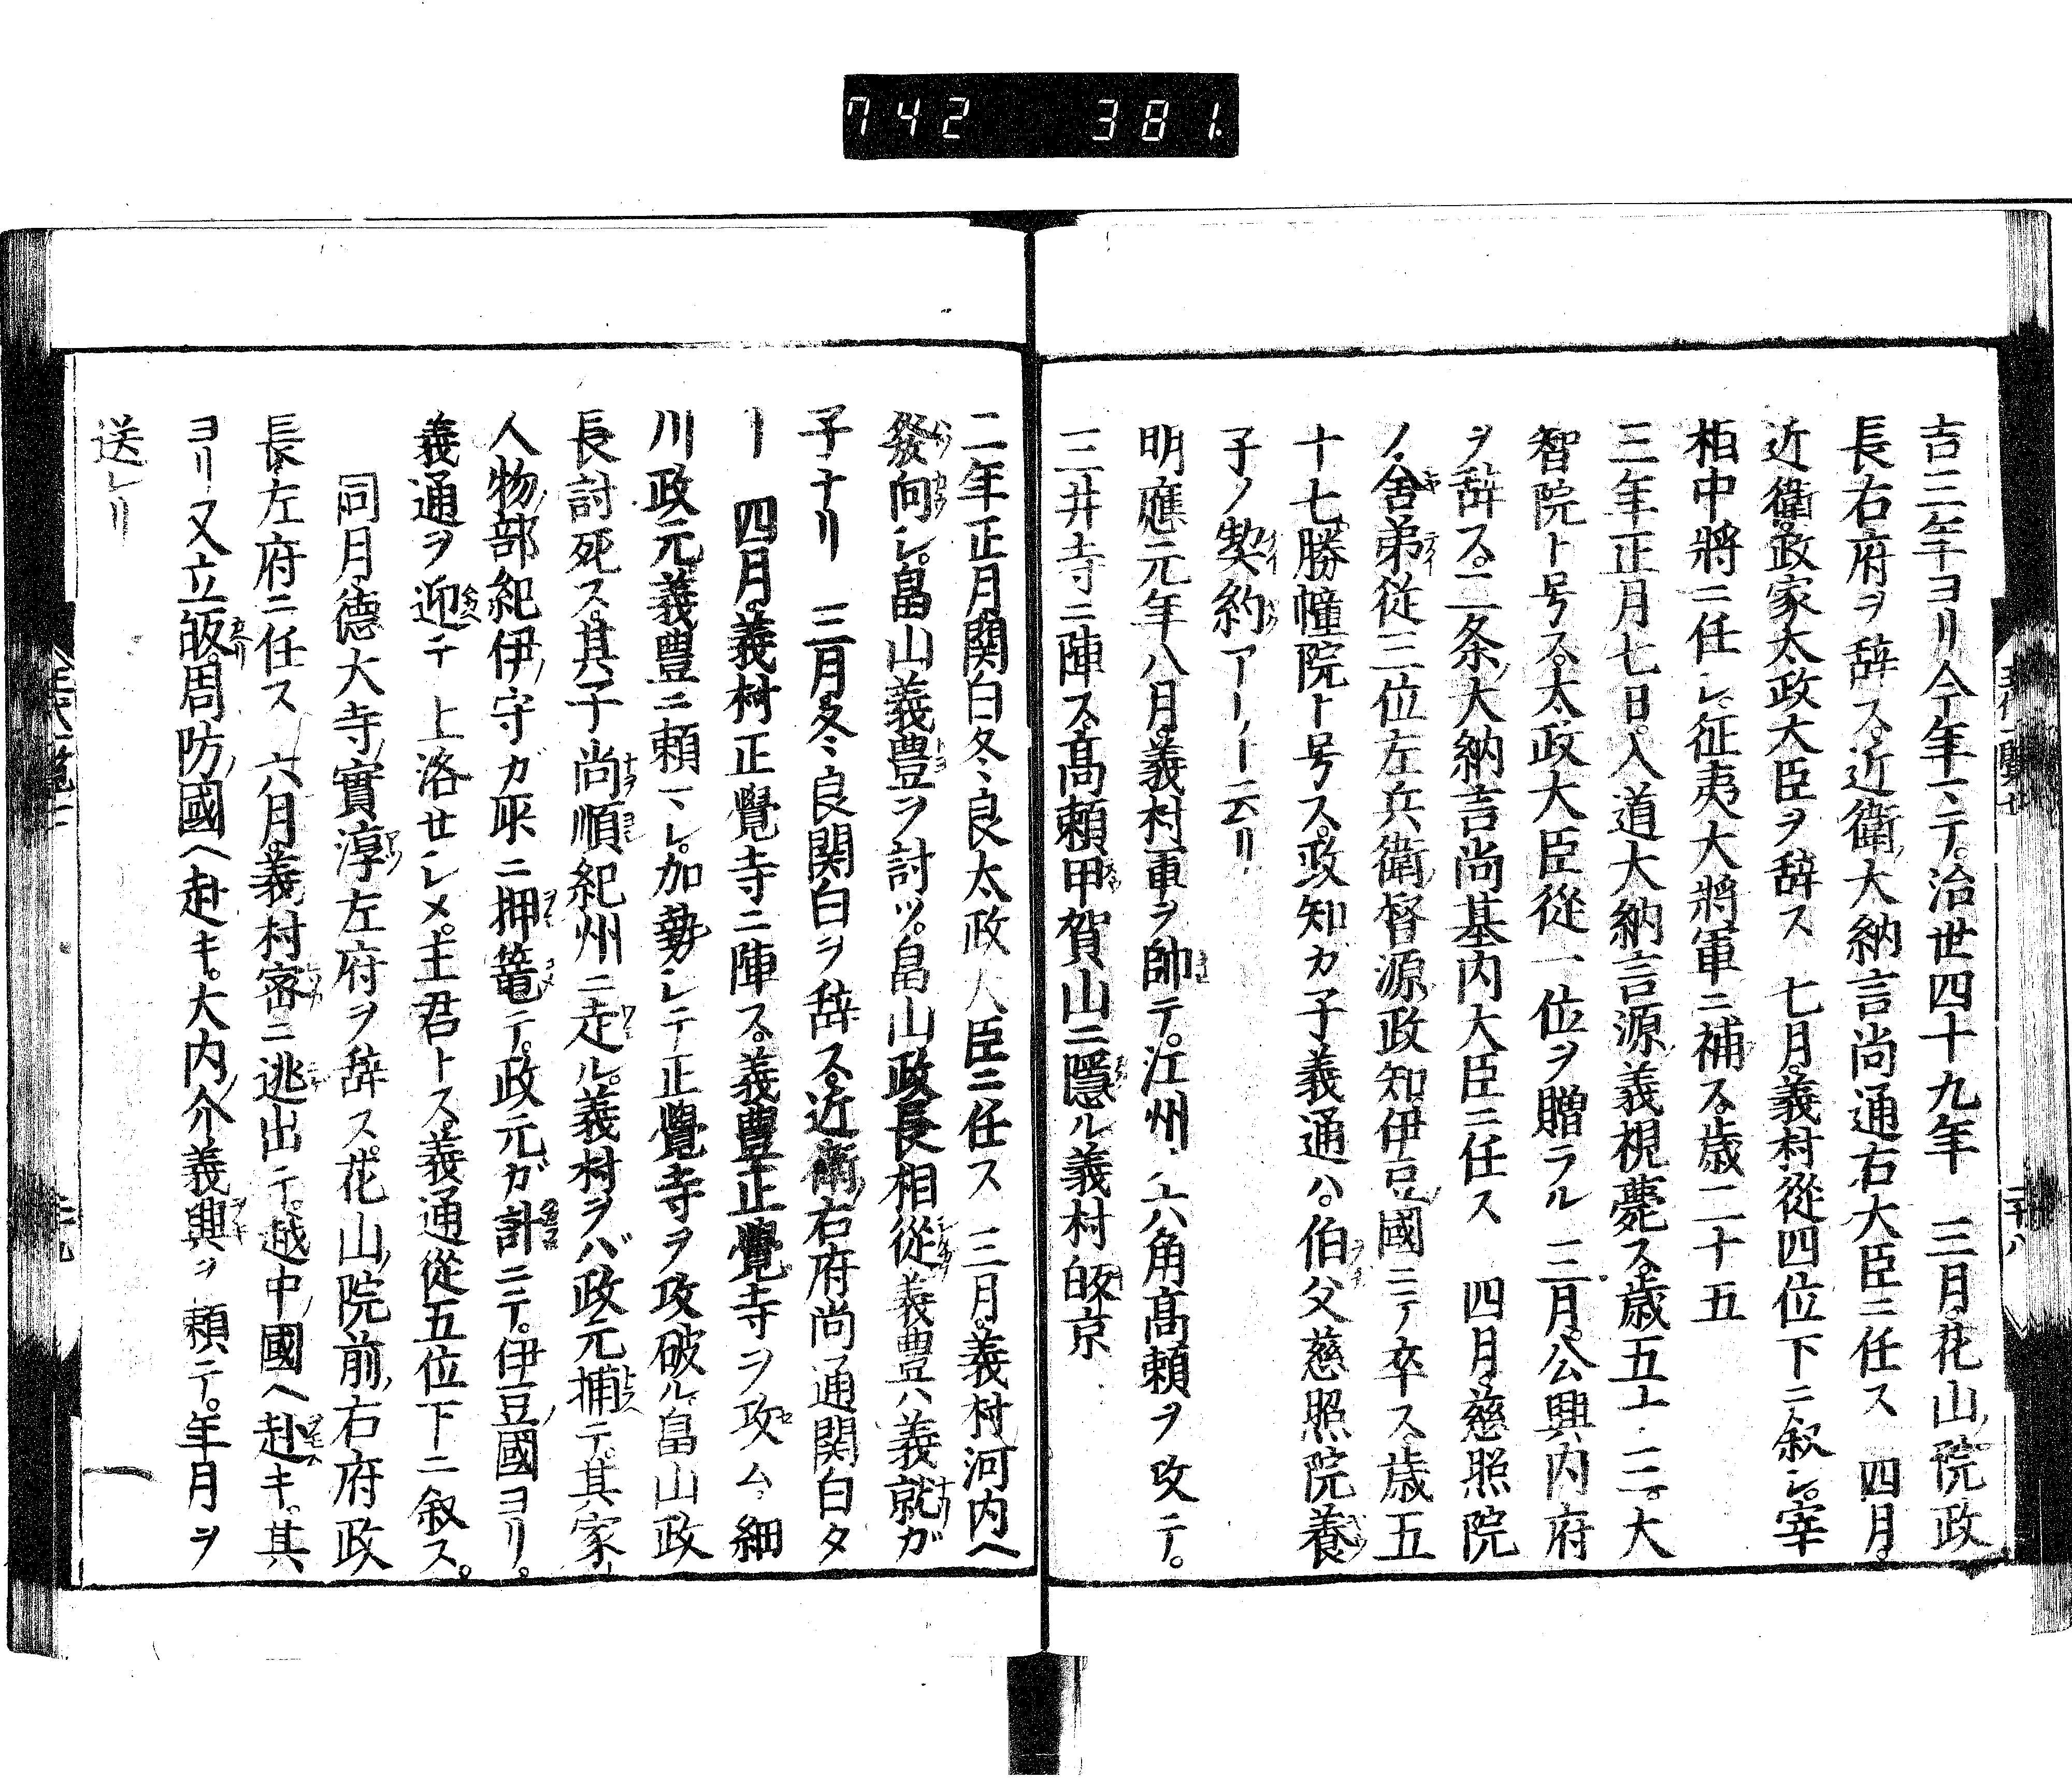 742 381.
吉三年ヨリ今年マテ。治世四十九年 三月。花山院政
長右府ヲ辞ス。近衛大納言尚通右大臣ニ任ス 四月。
近衛政家太政大臣ヲ辞ス 七月。義村從四位下ニ叙シ。宰
相中將ニ任シ。征夷大將軍ニ補ス。歳二十五
三年正月七日。入道大納言源義視薨ス。歳五十二。大
智院ト号ス。太政大臣從一位ヲ贈ラル 三月。公興内府
ヲ辞ス。二条大納言尚基内大臣ニ任ス 四月。慈照院
ノ舎弟從三位左兵衛督源政知。伊豆國ニテ卒ス。歳五
十七勝幢院ト号ス。政知カ子義通ハ。伯父慈照院養
子ノ契約アリト云リ
明應元年八月。義村軍ヲ帥テ。江州ノ六角髙頼ヲ攻テ。
三井寺ニ陣ス。髙頼甲賀山ニ隱ル義村皈京
二年正月関白冬良太政大臣ニ任ス 三月。義村河内ヘ
發向シ。畠山義豊ヲ討ツ。畠山政長相從義豊ハ義就ガ
子ナリ 三月。冬良関白ヲ辞ス。近衛右府尚通関白タ
リ 四月。義村正覺寺ニ陣ス。義豊正覺寺ヲ攻ム。細
川政元義豊ニ頼マレ。加勢シテ正覺寺ヲ攻破ル。畠山政
長討死ス。其子尚順紀州ニ走ル。義村ヲバ政元捕テ。其家
人物部紀伊守ガ所ニ押篭テ。政元ガ計ニテ。伊豆國ヨリ。
義通ヲ迎テ 上洛セシメ。主君トス。義通從五位下ニ叙ス。
同月。德大寺實淳左府ヲ辞ス。花山院前右府政
長左府ニ任ス 六月。義村密ニ逃出テ。越中國ヘ赴キ。其
ヨリ又立皈。周防國ヘ赴キ。大内介義興ヲ頼テ。年月ヲ
送レリ